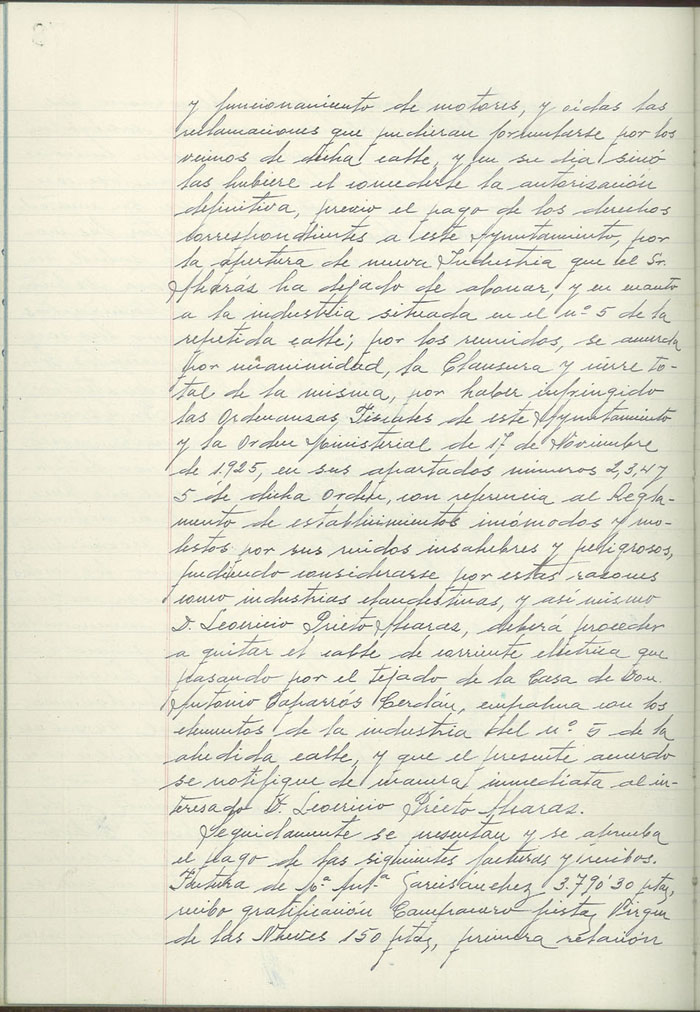 y funcionamiento de motores, y oidas las
reclamaciones que pudieran formularse por los
vecinos de dicha calle, y en su dia sinó
las hubiere el concederle la autorización
definitiva, previo el pago de los derechos
correspondientes a este Ayuntamiento, por
la apertura de nueva Industria que el Sr.
ha dejado de abonar, y en cuanto
a la industria situada en el nº 5 de la
repetida calle; por los reunidos, se acuerda
por unanimidad, la Clausura y cierre to-
tal de la misma, por haber infringido
las Ordenanzas Fiscales de este Ayuntamiento
y la Orden Ministerial de 17 de Noviembre
de 1.925, en sus apartados números 2, 3, 4 y
5 de dicha Orden, con referencia al Regla-
mento de establicimientos incómodos y mo-
lestos por sus ruidos insalubres y peligrosos,
pudiendo considerarse por estas razones
como industrias clandestinas, y así mismo
D. Leoricio Prieto deberá proceder
a quitar el cable de corriente eléctrica que
pasando por el tejado de la Casa de Don.
Antonio Caparrós Cerdán, empalma con los
elementos de la industria del nº 5 de la
aludida calle, y que el presente acuerdo
se notifique de manera inmediata al in-
teresado D. Leoricio Prieto
Seguidamente se presentan y se aprueba
el pago de las siguientes facturas y recibos.
Factura de Garcisanchez 3.790'30 ptas,
recibo gratificación Campanero fiestas Virgen
de las Nieves 150 ptas, primera relación